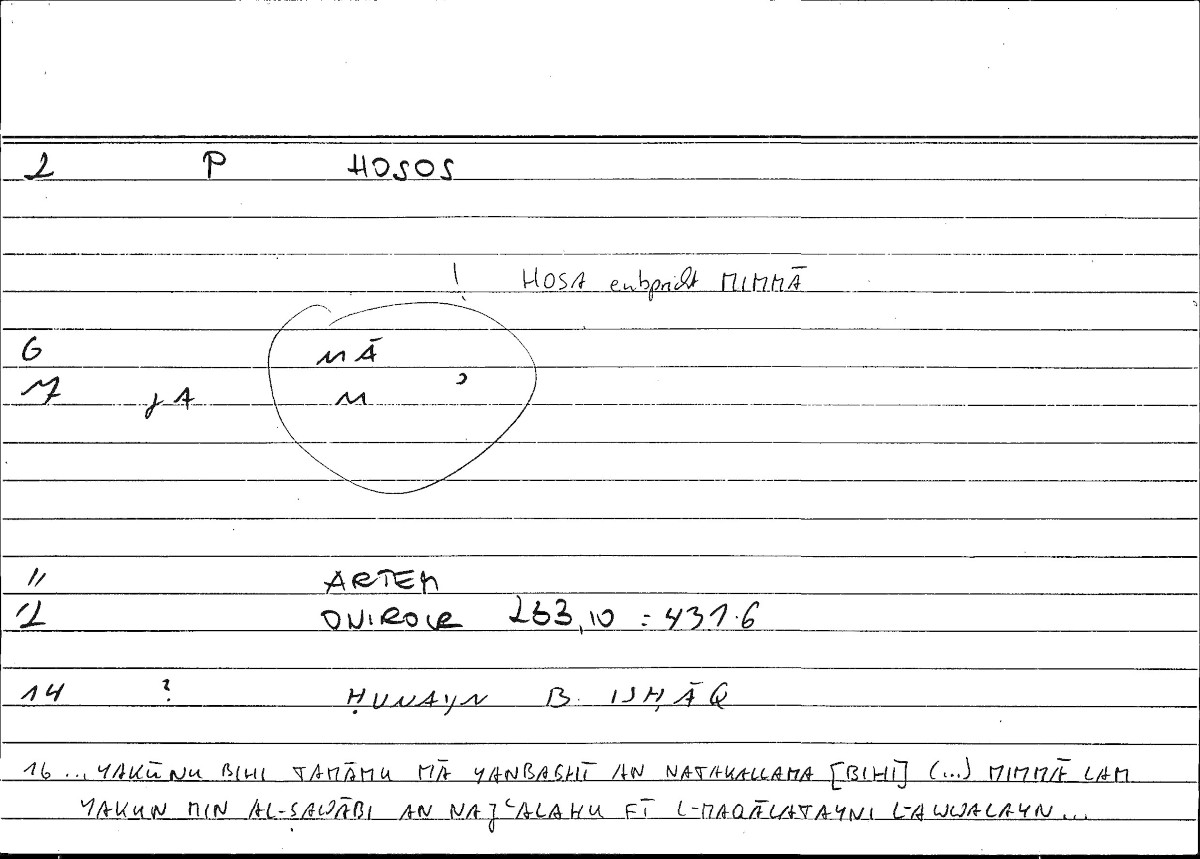 2 P HOSOS
! HOSA entspricht MIMMĀ
6 MĀ
7 jA M ʾ
11 ARTEM
12 ONIROCR 263,10 = 431.6
14 ? ḤUNAYN B. ISḤĀQ
16 ... YAKŪNU BIHI TAMĀMU MĀ YANBAGHĪ AN NATAKALLAMA [BIHI] (...) MIMMĀ LAM
YAKUN MIN AL-ṢAWĀBI AN NAJʿALAHU FĪ L-MAQĀLATAYNI L-AWWALAYN ...